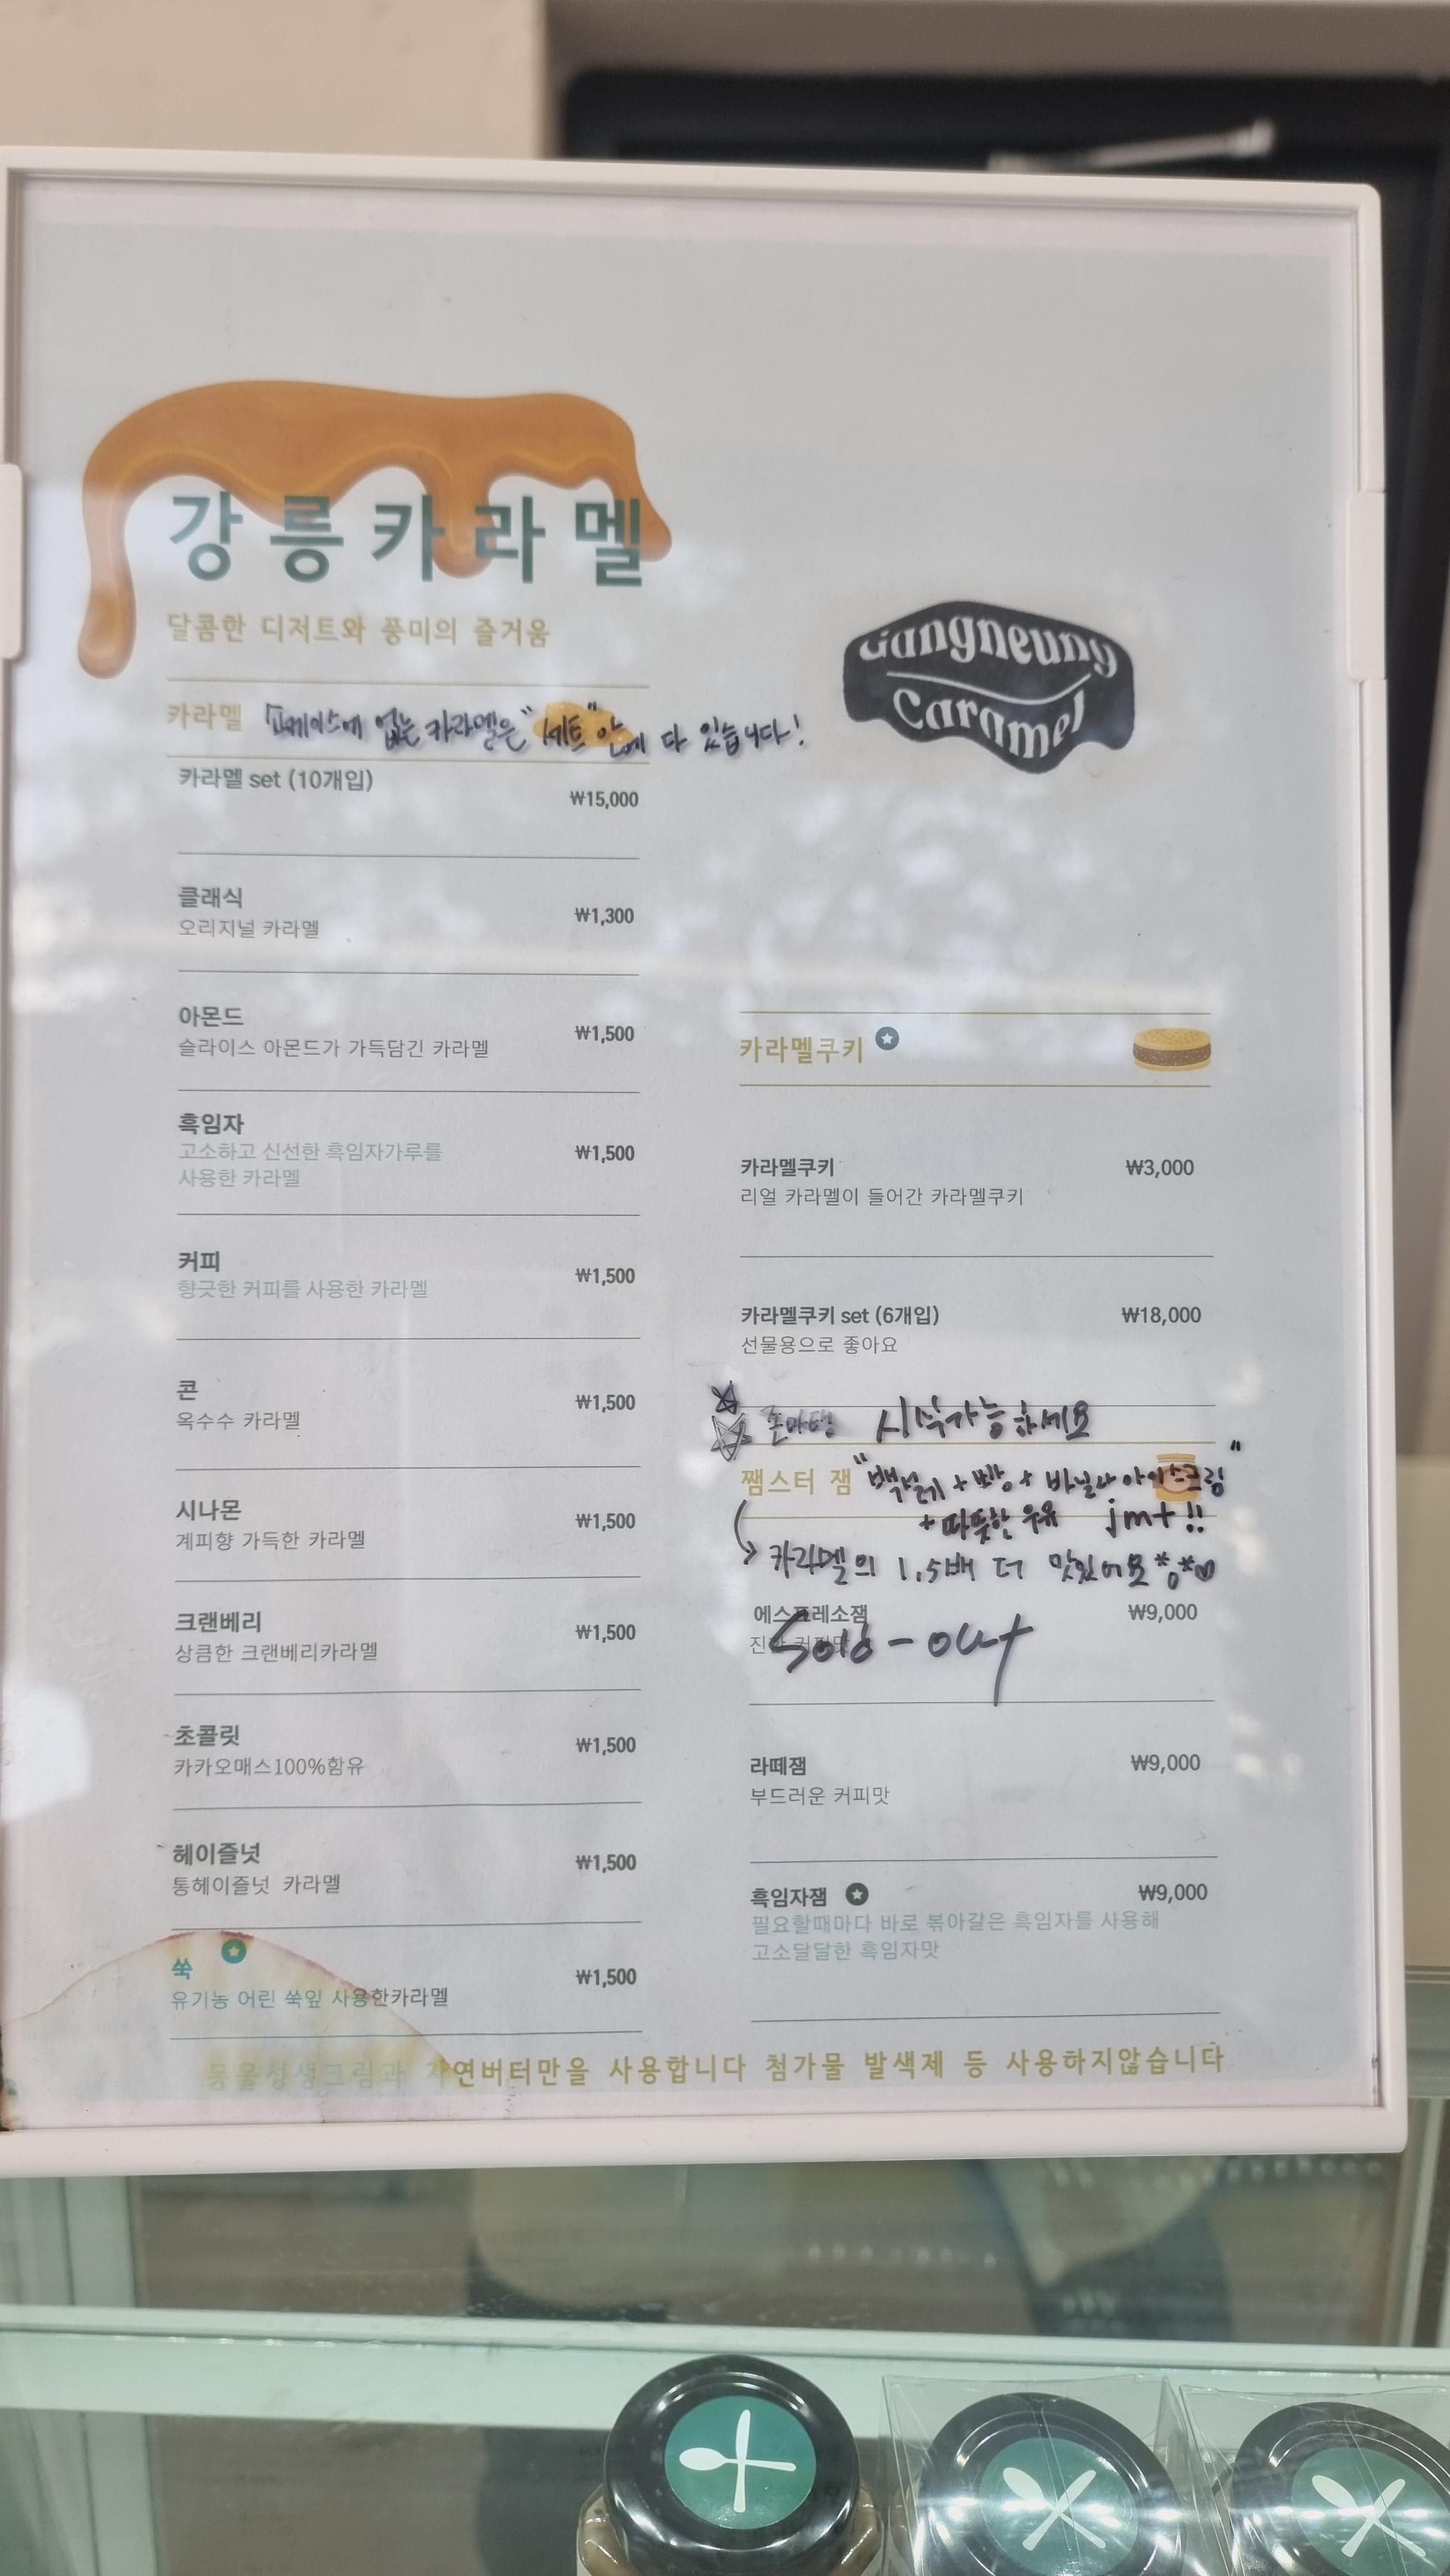 강릉카라멜
달콤한 디저트와 풍미의 즐거움
카라멜 쇼케이스에 없는 카라멜은 "세트" 안에 다 있습니다!
카라멜 set (10개입)
₩15,000
클래식
오리지널 카라멜
₩1,300
아몬드
슬라이스 아몬드가 가득담긴 카라멜
₩1,500
흑임자
고소하고 신선한 흑임자가루를
사용한 카라멜
₩1,500
커피
향긋한 커피를 사용한 카라멜
₩1,500
콘
옥수수 카라멜
₩1,500
시나몬
계피향 가득한 카라멜
₩1,500
크랜베리
상큼한 크랜베리카라멜
₩1,500
초콜릿
카카오매스100%함유
₩1,500
헤이즐넛
통헤이즐넛 카라멜
₩1,500
쑥
유기농 어린 쑥잎 사용한카라멜
₩1,500
Gangneung
Caramel
카라멜쿠키
카라멜쿠키 ₩3,000
리얼 카라멜이 들어간 카라멜쿠키
카라멜쿠키 set (6개입) ₩18,000
선물용으로 좋아요
존마탱 시식가능하세요
쨈스터 잼 "백설기 + 빵 + 바닐라 아이스크림"
+ 따뜻한 우유 jmt!!
카라멜의 1.5배 더 맛있어요
에스프레소잼 ₩9,000
진한 커피맛
Sold-out
라떼잼 ₩9,000
부드러운 커피맛
흑임자잼 ₩9,000
필요할때마다 바로 볶아갈은 흑임자를 사용해
고소달달한 흑임자맛
동물성생크림과 자연버터만을 사용합니다 첨가물 발색제 등 사용하지않습니다